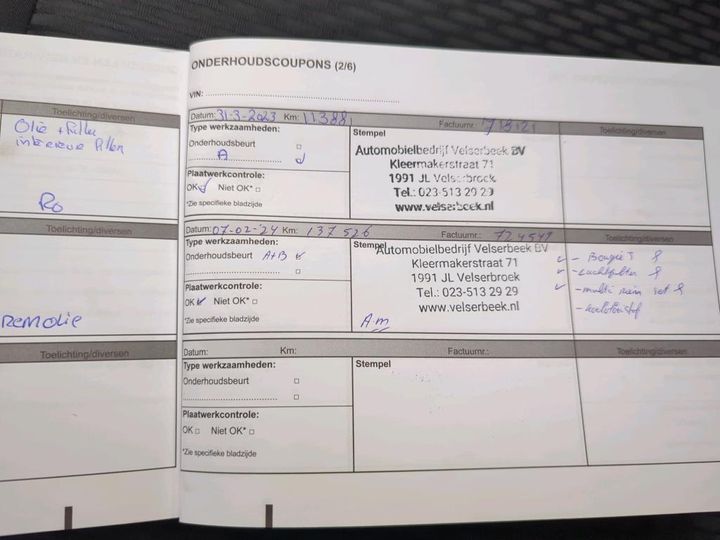 Toelichting/diversen
Olie + filter
interieur filter
Ro
Toelichting/diversen
REMOLIE
Toelichting/diversen
ONDERHOUDSCOUPONS (2/6)
VIN:
Datum: 31-3-2023 Km: Factuurnr.: Toelichting/diversen
Type werkzaamheden:
Onderhoudsbeurt
A
Plaatwerkcontrole:
OK Niet OK*
*Zie specifieke bladzijde
Stempel
Automobielbedrijf Velserbeek BV
Kleermakerstraat 71
1991 JL Velserbroek
Tel.: 023-513 29 29
www.velserbeek.nl
Datum: 07-02-'24 Km: 137526 Factuurnr.: Toelichting/diversen
Type werkzaamheden:
Onderhoudsbeurt A+B
Plaatwerkcontrole:
OK Niet OK*
*Zie specifieke bladzijde
Stempel
Automobielbedrijf Velserbeek BV
Kleermakerstraat 71
1991 JL Velserbroek
Tel.: 023-513 29 29
www.velserbeek.nl
A.m
- Bougie's
- Luchtfilter
- multi riem set
- koelvloeistof
Datum: Km: Factuurnr.: Toelichting/diversen
Type werkzaamheden:
Onderhoudsbeurt
Plaatwerkcontrole:
OK Niet OK*
*Zie specifieke bladzijde
Stempel